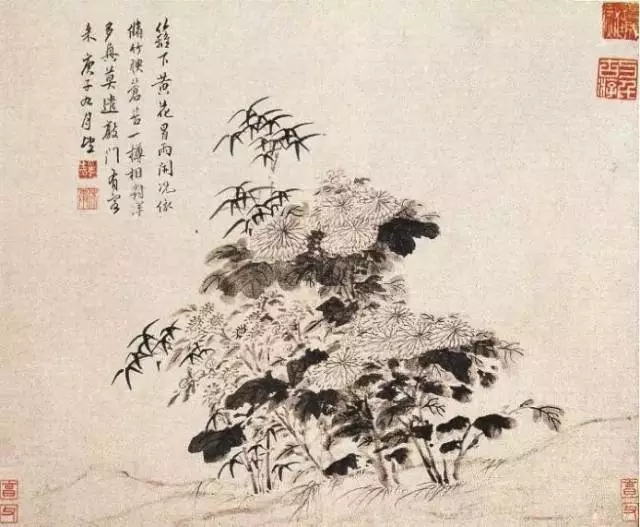 籬下黃花冒雨開況依
脩竹映蒼苔一樽相對
多興莫遣敲門有客
来 庚子九月